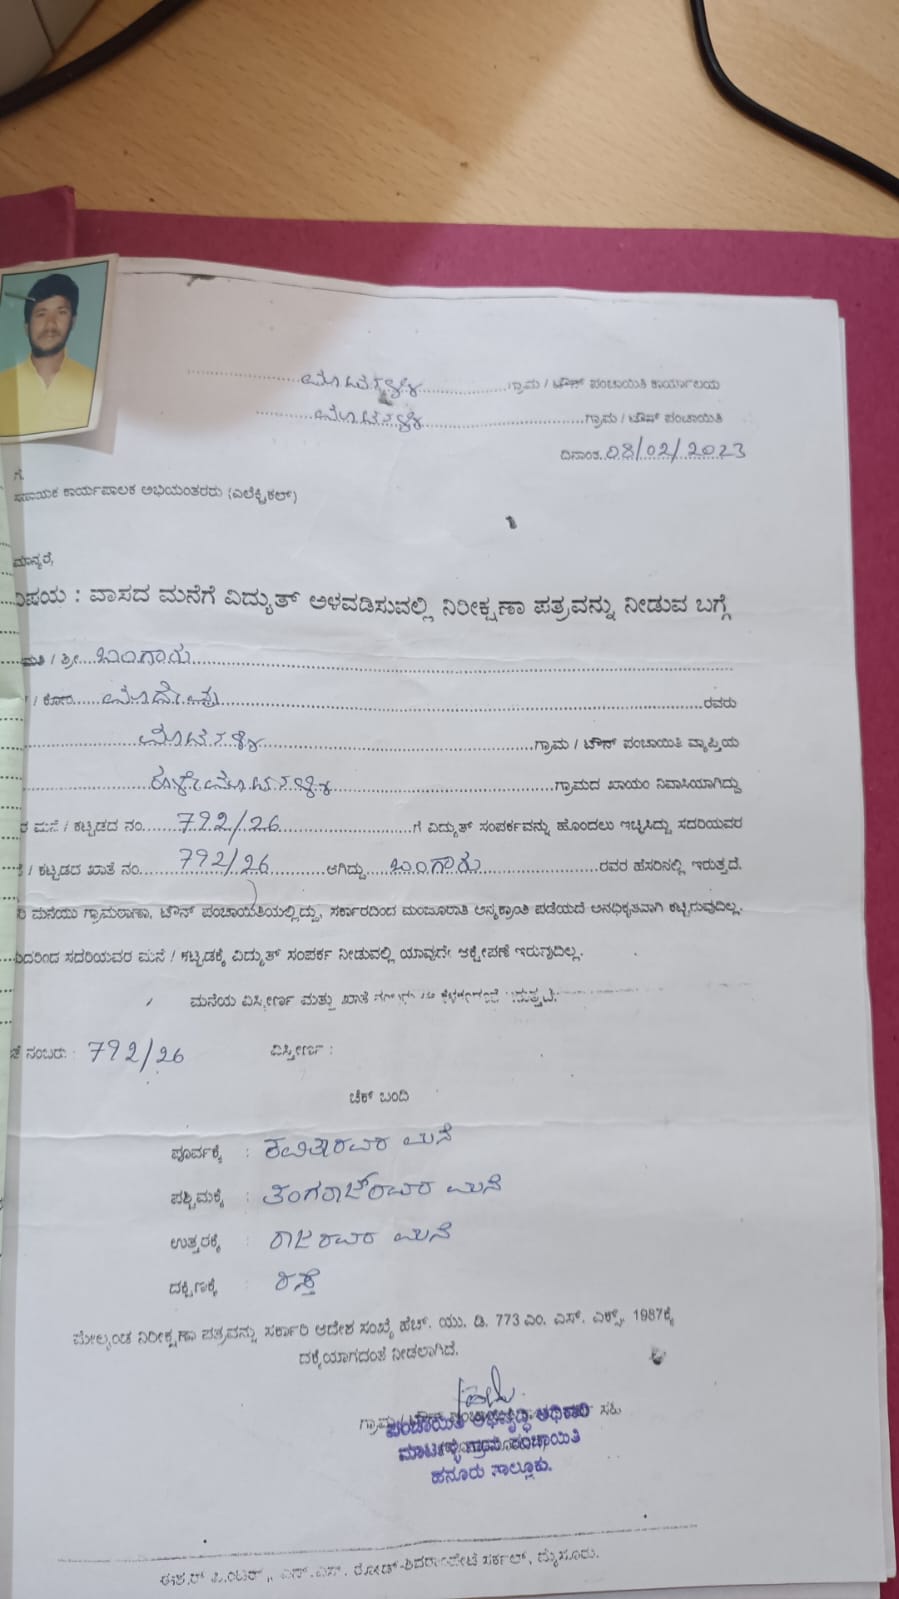 ಮಾರ್ಟಳ್ಳಿ ಗ್ರಾಮ / ಟೌನ್ ಪಂಚಾಯಿತಿ ಕಾರ್ಯಾಲಯ
ಗ್ರಾಮ / ಟೌನ್ ಪಂಚಾಯಿತಿ
ದಿನಾಂಕ. 08/02/2023
ಗೆ.
ಸಹಾಯಕ ಕಾರ್ಯಪಾಲಕ ಅಭಿಯಂತರರು (ಎಲೆಕ್ಟ್ರಿಕಲ್)
ಮಾನ್ಯರೆ,
ವಿಷಯ : ವಾಸದ ಮನೆಗೆ ವಿದ್ಯುತ್ ಅಳವಡಿಸುವಲ್ಲಿ ನಿರೀಕ್ಷಣಾ ಪತ್ರವನ್ನು ನೀಡುವ ಬಗ್ಗೆ
/ ಶ್ರೀ ಬಂಗಾರು
/ ಕೋಂ ಮಾದೇವ ರವರು
ಗ್ರಾಮ / ಟೌನ್ ಪಂಚಾಯಿತಿ ವ್ಯಾಪ್ತಿಯ
ಗ್ರಾಮದ ಖಾಯಂ ನಿವಾಸಿಯಾಗಿದ್ದು
ಮನೆ / ಕಟ್ಟಡದ ನಂ. 792/26 ಗೆ ವಿದ್ಯುತ್ ಸಂಪರ್ಕವನ್ನು ಹೊಂದಲು ಇಚ್ಛಿಸಿದ್ದು ಸದರಿಯವರ
/ ಕಟ್ಟಡದ ಖಾತೆ ನಂ. 792/26 ಆಗಿದ್ದು ಬಂಗಾರು ರವರ ಹೆಸರಿನಲ್ಲಿ ಇರುತ್ತದೆ.
ಮನೆಯು ಗ್ರಾಮಠಾಣಾ, ಟೌನ್ ಪಂಚಾಯಿತಿಯಲ್ಲಿದ್ದು, ಸರ್ಕಾರದಿಂದ ಮಂಜೂರಾತಿ ಪಡೆಯದೆ ಅನಧಿಕೃತವಾಗಿ ಕಟ್ಟಿರುವುದಿಲ್ಲ.
ಸದರಿಯವರ ಮನೆ / ಕಟ್ಟಡಕ್ಕೆ ವಿದ್ಯುತ್ ಸಂಪರ್ಕ ನೀಡುವಲ್ಲಿ ಯಾವುದೇ ಆಕ್ಷೇಪಣೆ ಇರುವುದಿಲ್ಲ.
ಮನೆಯ ವಿಸ್ತೀರ್ಣ ಮತ್ತು ಖಾತೆ
ನಂಬರು : 792/26 ವಿಸ್ತೀರ್ಣ :
ಚೆಕ್ ಬಂದಿ
ಪೂರ್ವಕ್ಕೆ : ಕವಿತಾರವರ ಮನೆ
ಪಶ್ಚಿಮಕ್ಕೆ : ತಂಗರಾಜ್‌ರವರ ಮನೆ
ಉತ್ತರಕ್ಕೆ : ರಾಜರವರ ಮನೆ
ದಕ್ಷಿಣಕ್ಕೆ : ರಸ್ತೆ
ಮೇಲ್ಕಂಡ ನಿರೀಕ್ಷಣಾ ಪತ್ರವನ್ನು ಸರ್ಕಾರಿ ಆದೇಶ ಸಂಖ್ಯೆ ಹೆಚ್. ಯು. ಡಿ. 773 ಎಂ. ಎನ್. ಎಕ್ಸ್, 1987ಕ್ಕೆ
ದಕ್ಕೆಯಾಗದಂತೆ ನೀಡಲಾಗಿದೆ.
ಸಹಿ
ಪಂಚಾಯಿತಿ ಅಭಿವೃದ್ಧಿ ಅಧಿಕಾರಿ
ಗ್ರಾಮ ಪಂಚಾಯಿತಿ
ಹನೂರು ತಾಲ್ಲೂಕು.
ಸರ್ಕಲ್, ಮೈಸೂರು.